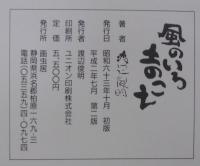 風のいろ
土のこえ
著者
発行日 昭和六十三年十月 初版
平成二年七月 第二版
発行者 渡辺俊明
印刷所 ユニオン印刷株式会社
定価 五、五〇〇円
発行所 画虫居
静岡県浜名郡
電話〇五三五九(四)〇九七四